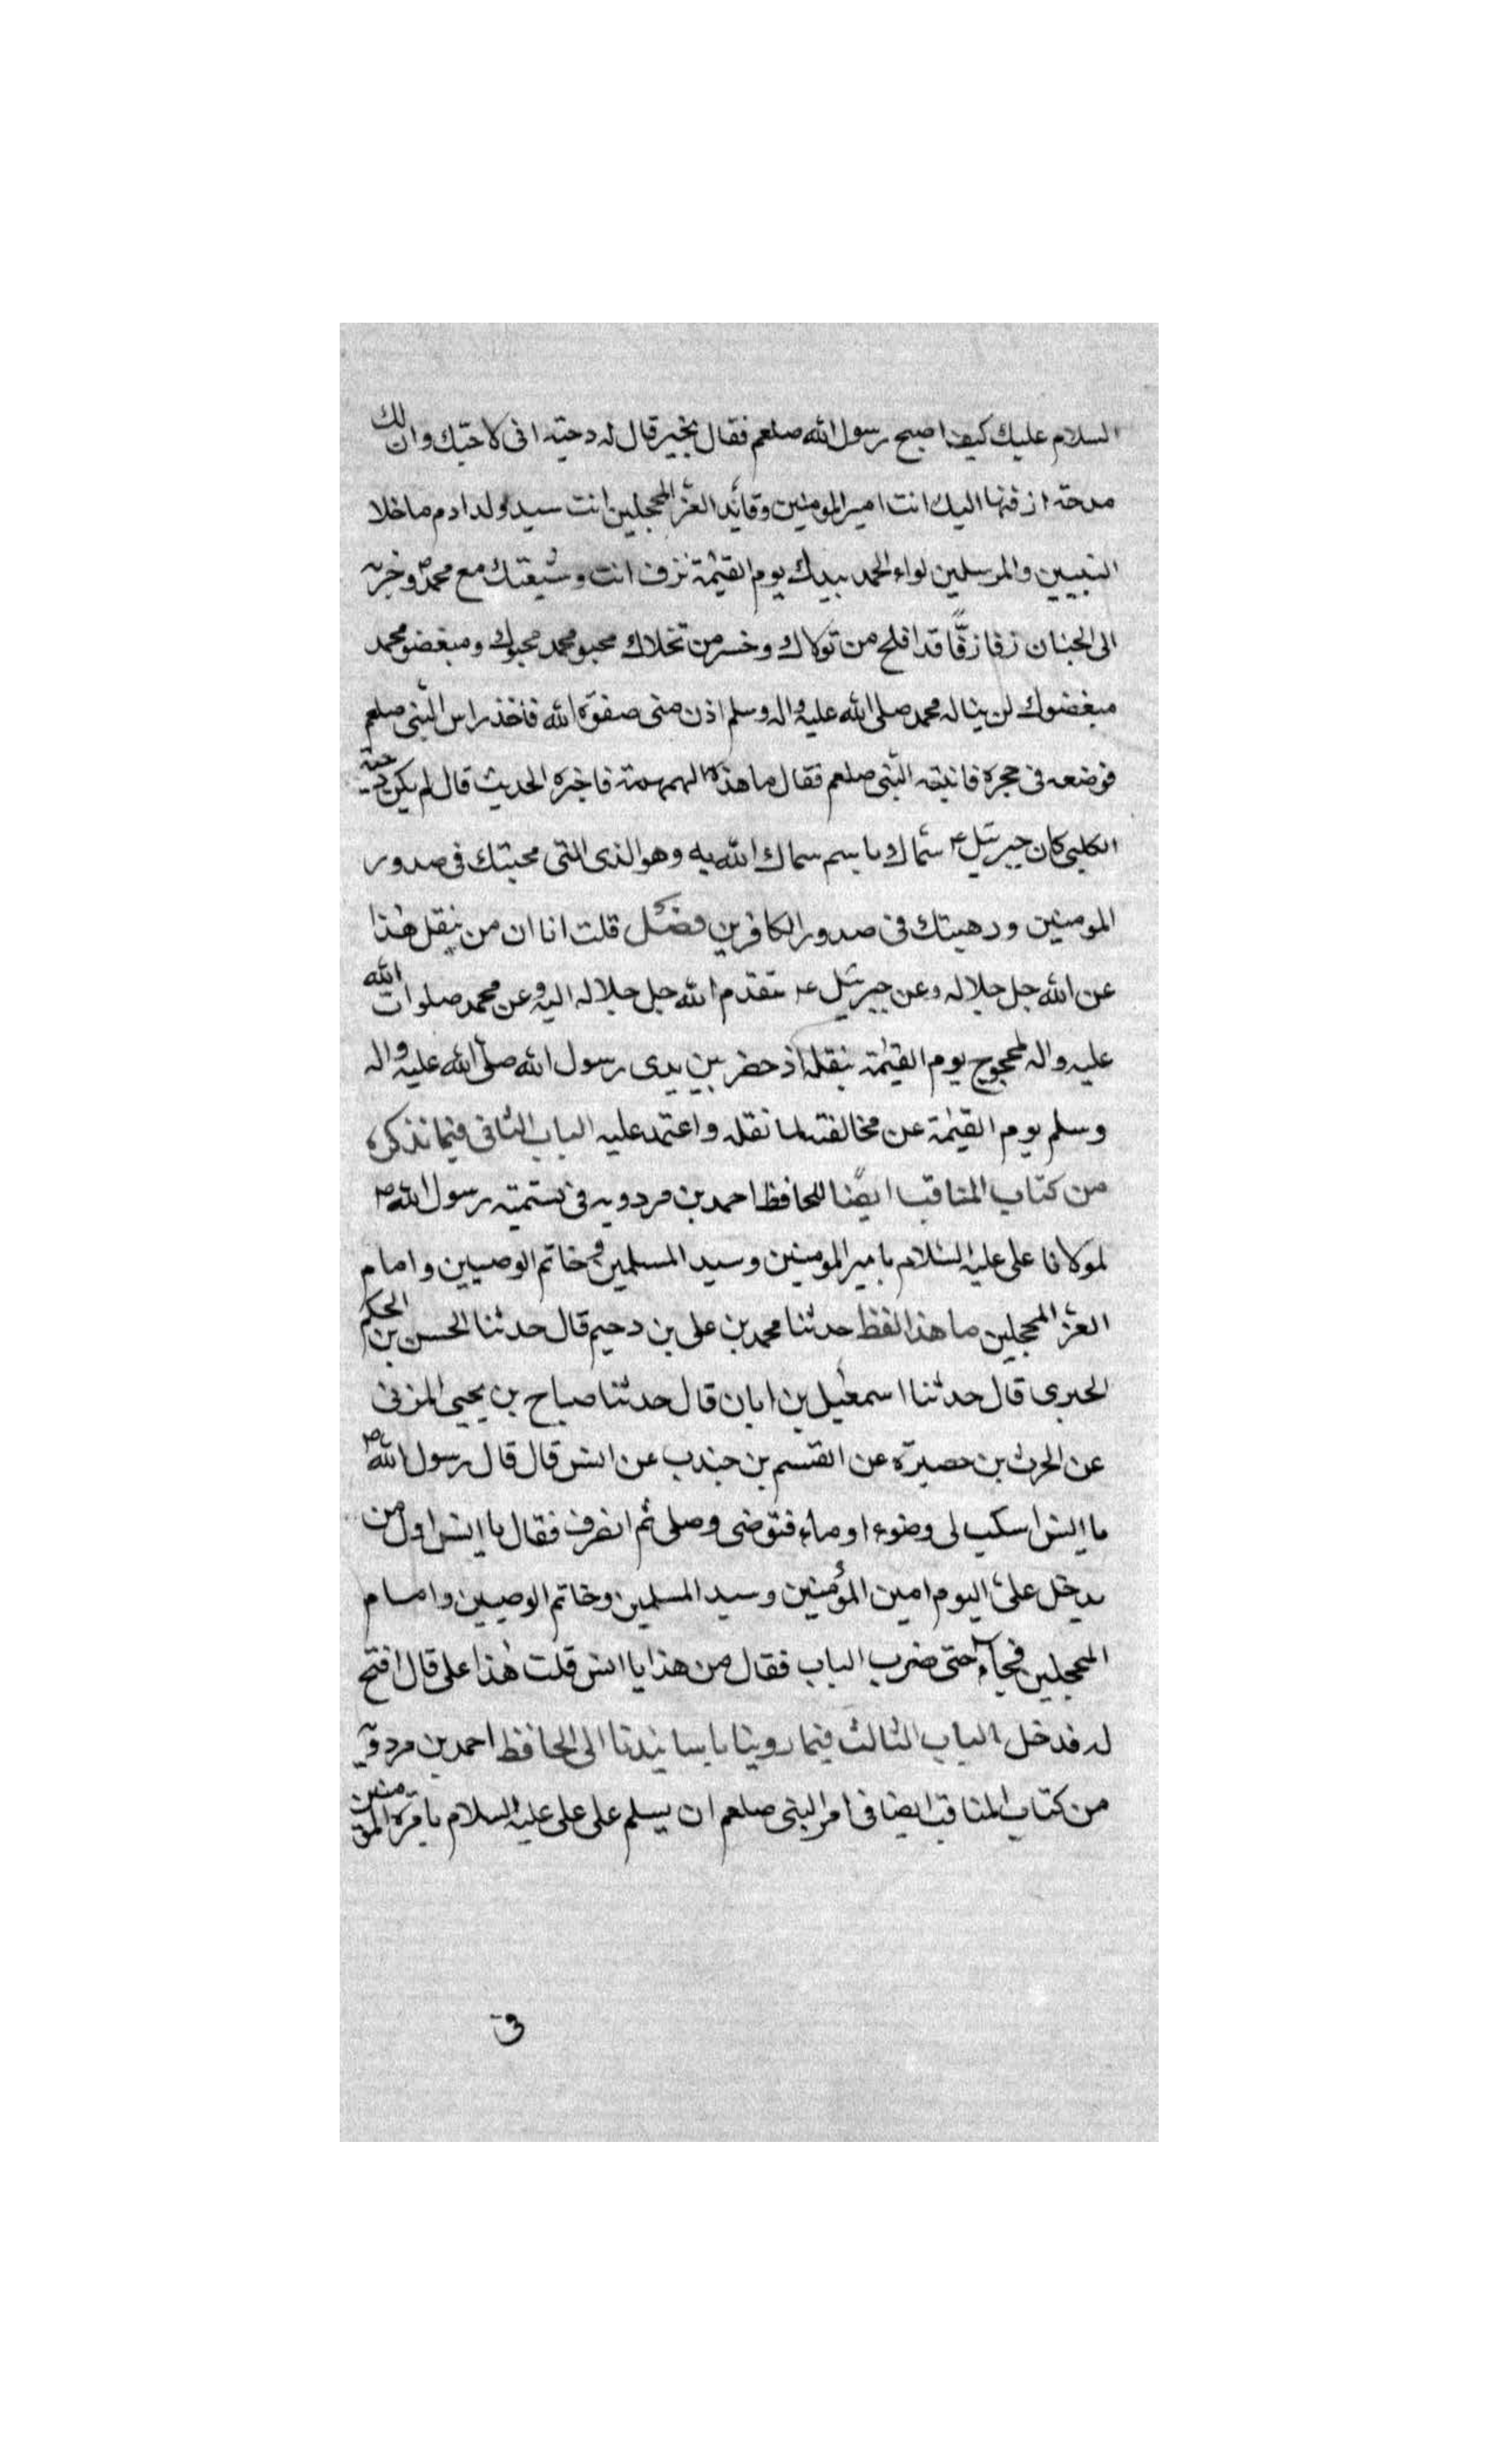 السلام عليك كيف اصبح رسول الله صلعم فقال بخير قال له دحيه انى لاحبك وان لك
مدحة ازفها اليك انت امير المومنين وقائد الغر المحجلين انت سيد ولد ادم ما خلا
النبيين والمرسلين لواء الحمد بيدك يوم القيمة تزف انت وشيعتك مع محمد ص وحزبه
الى الجنان زفا زفًّا قد افلح من تولاك وخسر من تخلاك محبو محمد محبوك ومبغضو محمد
مبغضوك لن يناله محمد صلى الله عليه واله وسلم اذن منى صفوة الله فاخذ راس النبى صلعم
فوضعه فى حجره فانتبه النبى صلعم فقال ما هذه الهمهمة فاخبره الحديث قال لم يكن دحية
الكلبى كان جبرئيل ع سماك باسم سماك الله به وهو الذى القى محبتك فى صدور
المومنين ورهبتك فى صدور الكافرين فصل قلت انا ان من ينقل هذا
عن الله جل جلاله وعن جبرئيل ع بتقدم الله جل جلاله اليه وعن محمد صلوات الله
عليه واله لمحجوج يوم القيمة بنقله اذ حضر بين يدى رسول الله صلى الله عليه واله
وسلم يوم القيمة عن مخالفته لما نقله واعتمد عليه الباب الثانى فيما نذكره
من كتاب المناقب ايضًا للحافظ احمد بن مردويه فى تسمية رسول الله ص
لمولانا على عليه السلام بامير المومنين وسيد المسلمين و خاتم الوصيين وامام
الغر المحجلين ما هذا لفظ حدثنا محمد بن على بن دحيم قال حدثنا الحسن بن الحكم
الحبرى قال حدثنا اسمعيل بن ابان قال حدثنا صباح بن يحيى المزنى
عن الحرث بن حصيرة عن القسم بن جندب عن انس قال قال رسول الله ص
يا انس اسكب لى وضوء او ماء فتوضى وصلى ثم انصرف فقال يا انس اول من
يدخل على اليوم امير المؤمنين وسيد المسلمين وخاتم الوصيين وامام
المحجلين فجاء حتى ضرب الباب فقال من هذا يا انس قلت هذا على قال افتح
له فدخل الباب الثالث فيما روينا باسانيدنا الى الحافظ احمد بن مردويه
من كتاب المناقب ايضا فى امر النبى صلعم ان يسلم على على عليه السلام بامرة المومنين